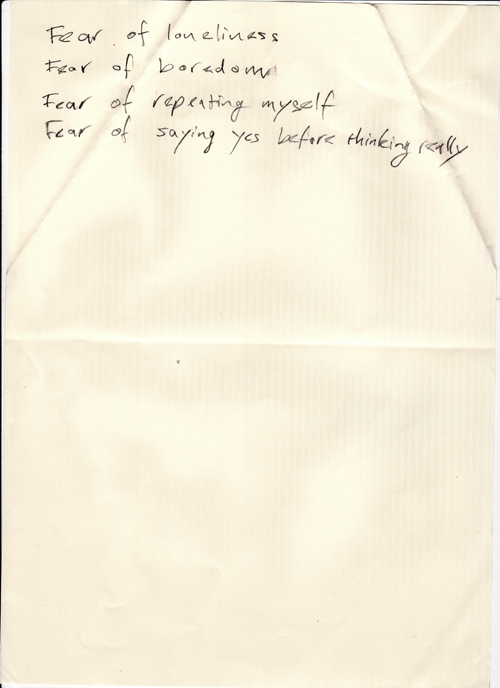 Fear of loneliness
Fear of boredom
Fear of repeating myself
Fear of saying yes before thinking really